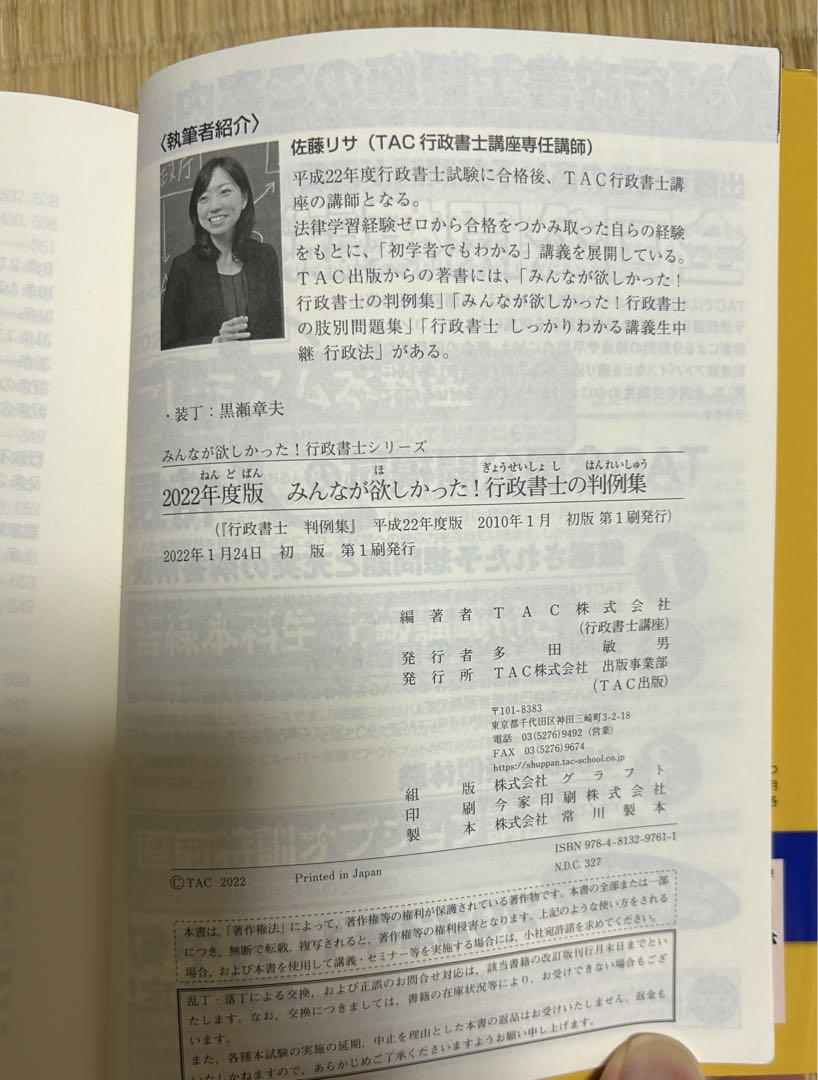 〈執筆者紹介〉
佐藤リサ(TAC行政書士講座専任講師)
平成22年度行政書士試験に合格後、TAC行政書士講
座の講師となる。
法律学習経験ゼロから合格をつかみ取った自らの経験
をもとに、「初学者でもわかる」講義を展開している。
TAC出版からの著書には、「みんなが欲しかった!
行政書士の判例集」「みんなが欲しかった!行政書士
の肢別問題集」「行政書士 しっかりわかる講義生中
継 行政法」がある。
・装丁:黒瀬章夫
みんなが欲しかった!行政書士シリーズ
ねんどばん ほ ぎょうせいしょし はんれいしゅう
2022年度版 みんなが欲しかった!行政書士の判例集
(『行政書士 判例集』 平成22年度版 2010年1月 初版 第1刷発行)
2022年1月24日 初 版 第1刷発行
編著者 TAC株式会社
(行政書士講座)
発行者 多田敏男
発行所 TAC株式会社 出版事業部
(TAC出版)
〒101-8383
東京都千代田区神田三崎町3-2-18
電話 03(5276)9492(営業)
FAX 03(5276)9674
https://shuppan.tac-school.co.jp
組版 株式会社 グラフト
印刷 今家印刷株式会社
製本 株式会社 常川製本
©TAC 2022 Printed in Japan ISBN 978-4-8132-9761-1
N.D.C. 327
本書は、「著作権法」によって、著作権等の権利が保護されている著作物です。本書の全部または一部
につき、無断で転載、複写されると、著作権等の権利侵害となります。上記のような使い方をされる
場合、および本書を使用して講義・セミナー等を実施する場合には、小社宛許諾を求めてください。
乱丁・落丁による交換、および正誤のお問合せ対応は、該当書籍の改訂版刊行月末日までとい
たします。なお、交換につきましては、書籍の在庫状況等により、お受けできない場合もござ
います。
また、各種本試験の実施の延期、中止を理由とした本書の返品はお受けいたしません。返金も
いたしかねますので、あらかじめご了承くださいますようお願い申し上げます。